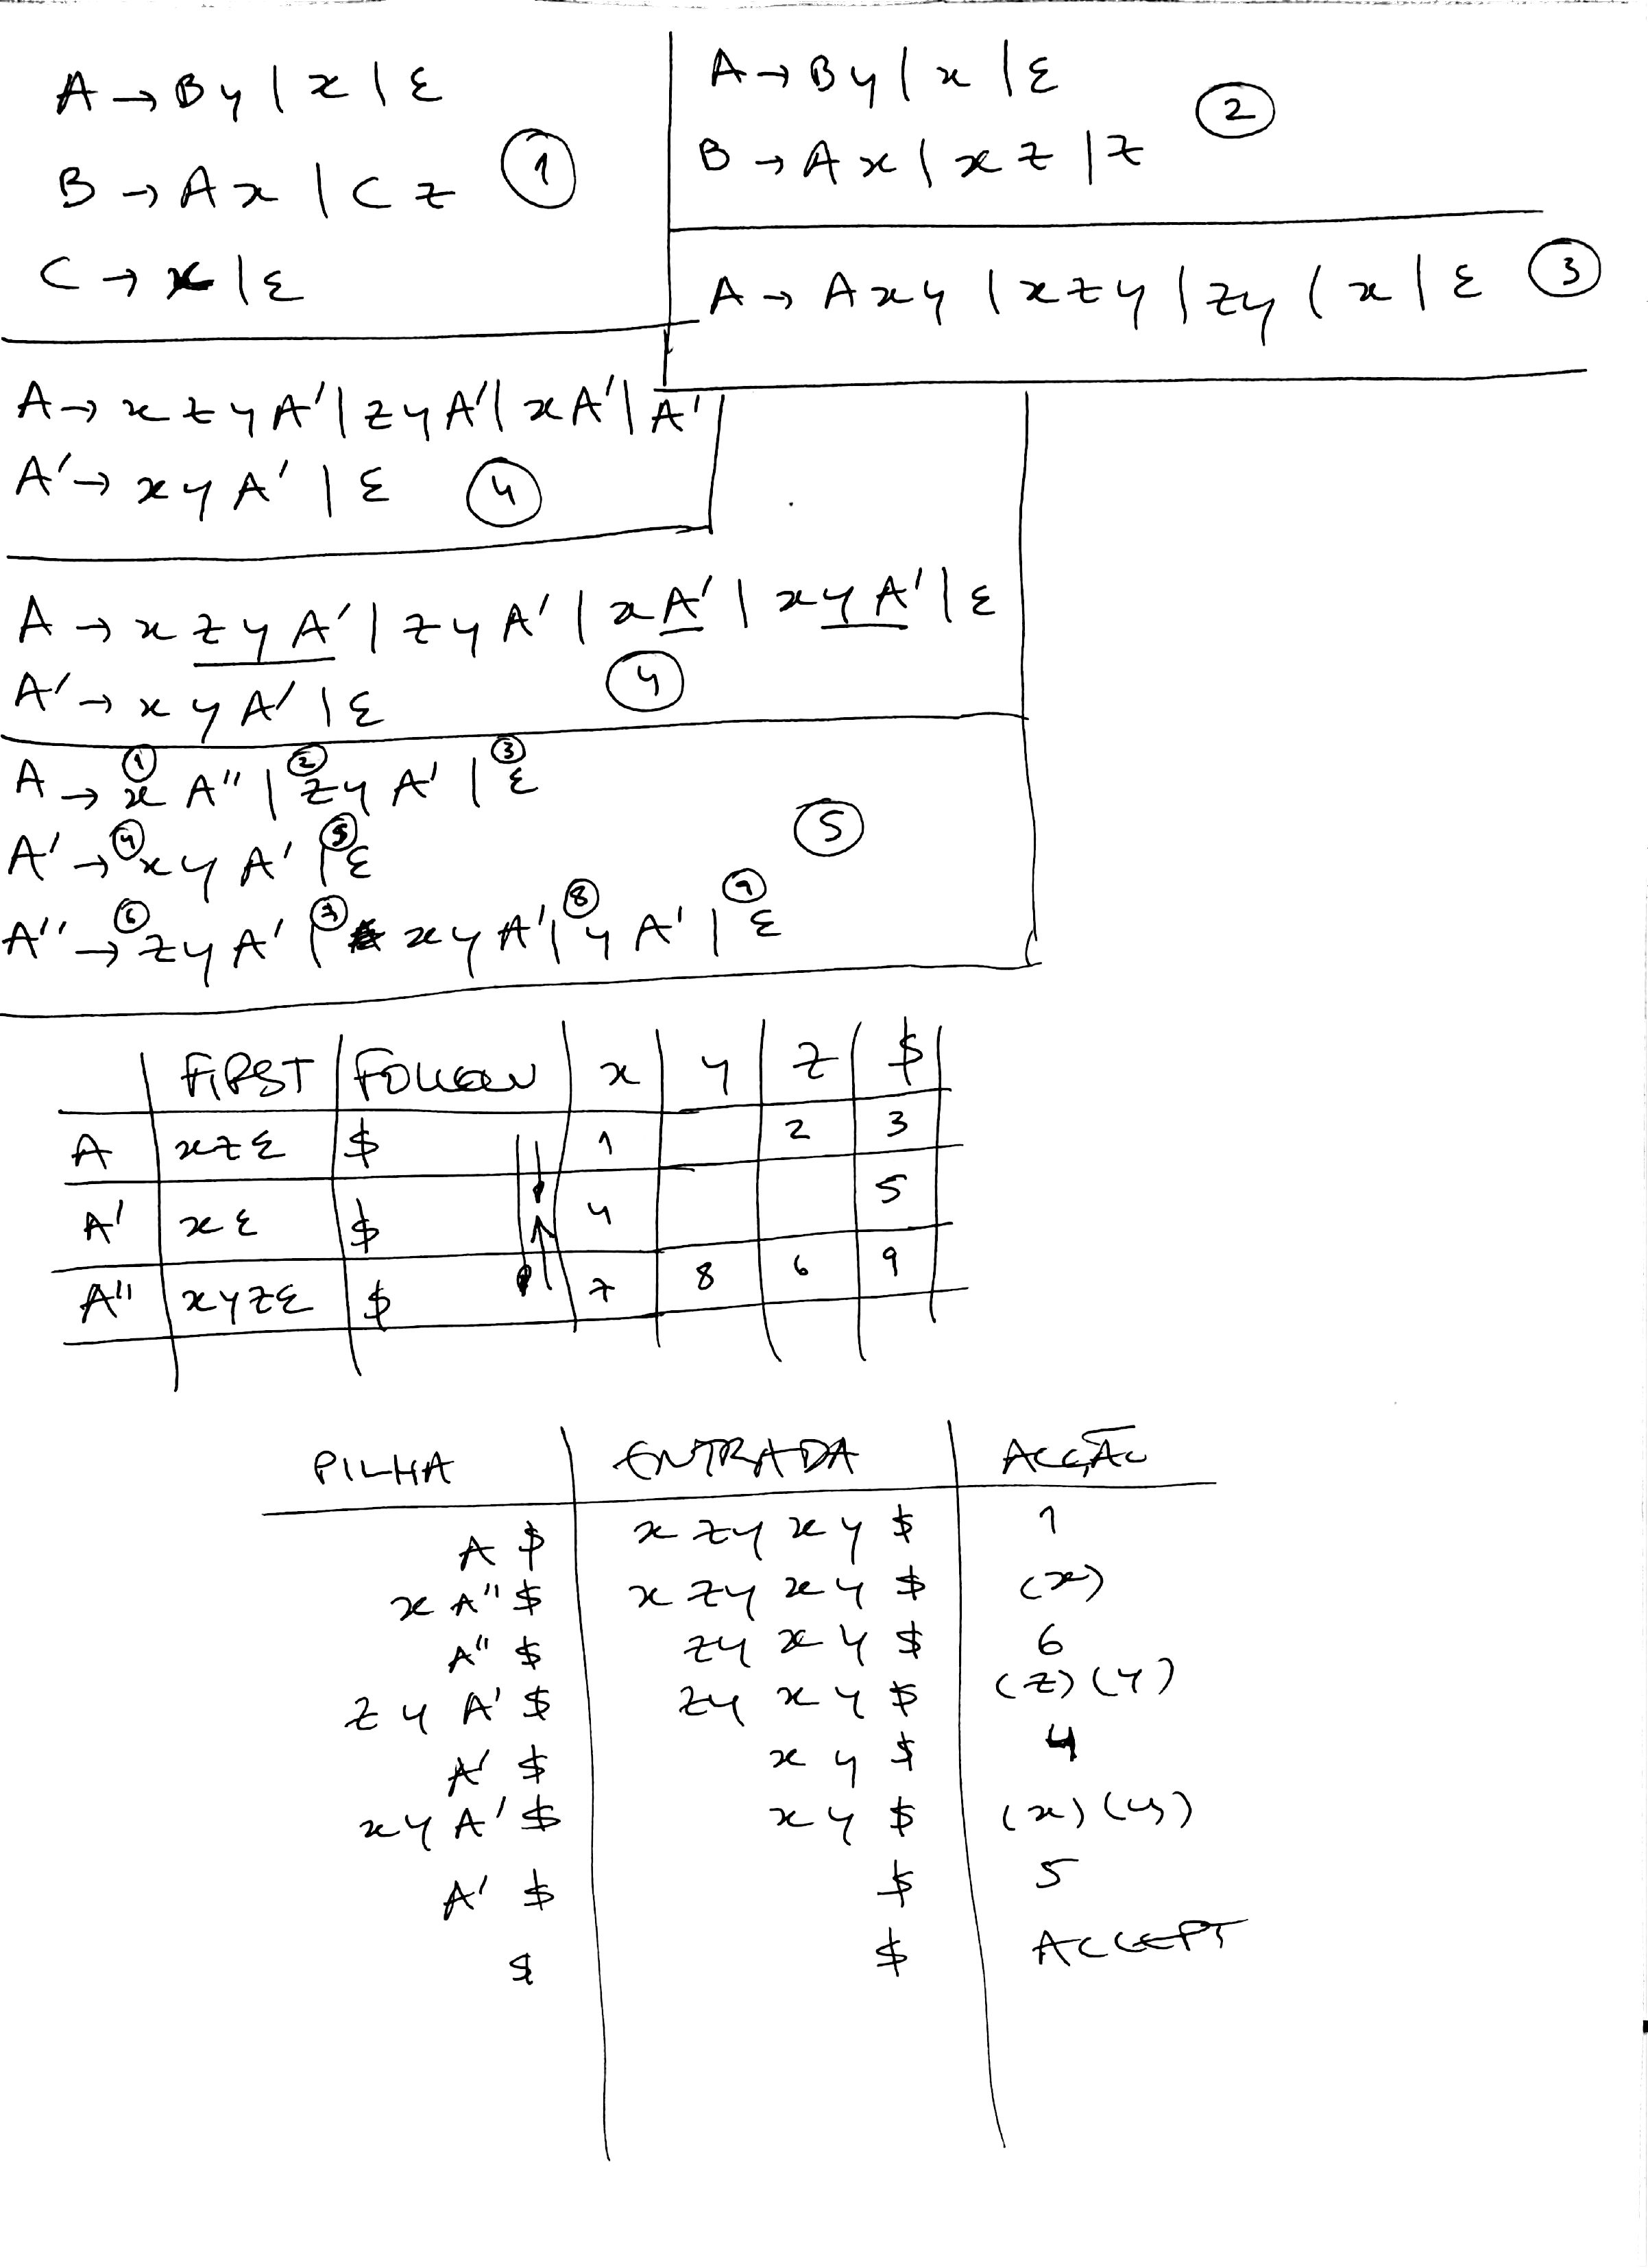 A → By | x | ε
B → Ax | Cz ①
C → x | ε
A → By | x | ε
B → Ax | xz | z ②
A → Axy | xzy | zy | x | ε ③
A → xzyA' | zyA' | xA' | A'
A' → xyA' | ε ④
A → xzyA' | zyA' | xA' | xyA' | ε
A' → xyA' | ε ④
A → ① xA'' | ② zyA' | ③ ε
A' → ④ xyA' | ⑤ ε ⑤
A'' → ⑥ zyA' | ⑦ xyA' | ⑧ yA' | ⑨ ε
FIRST FOLLOW x y z $
A xzε $ 1 2 3
A' xε $ 4 5
A'' xyzε $ 7 8 6 9
PILHA ENTRADA ACÇÃO
A $ x zy xy $ 1
x A'' $ x zy xy $ (x)
A'' $ zy xy $ 6
z y A' $ zy xy $ (z)(y)
A' $ xy $ 4
xy A' $ xy $ (x)(y)
A' $ $ 5
$ $ ACCEPT